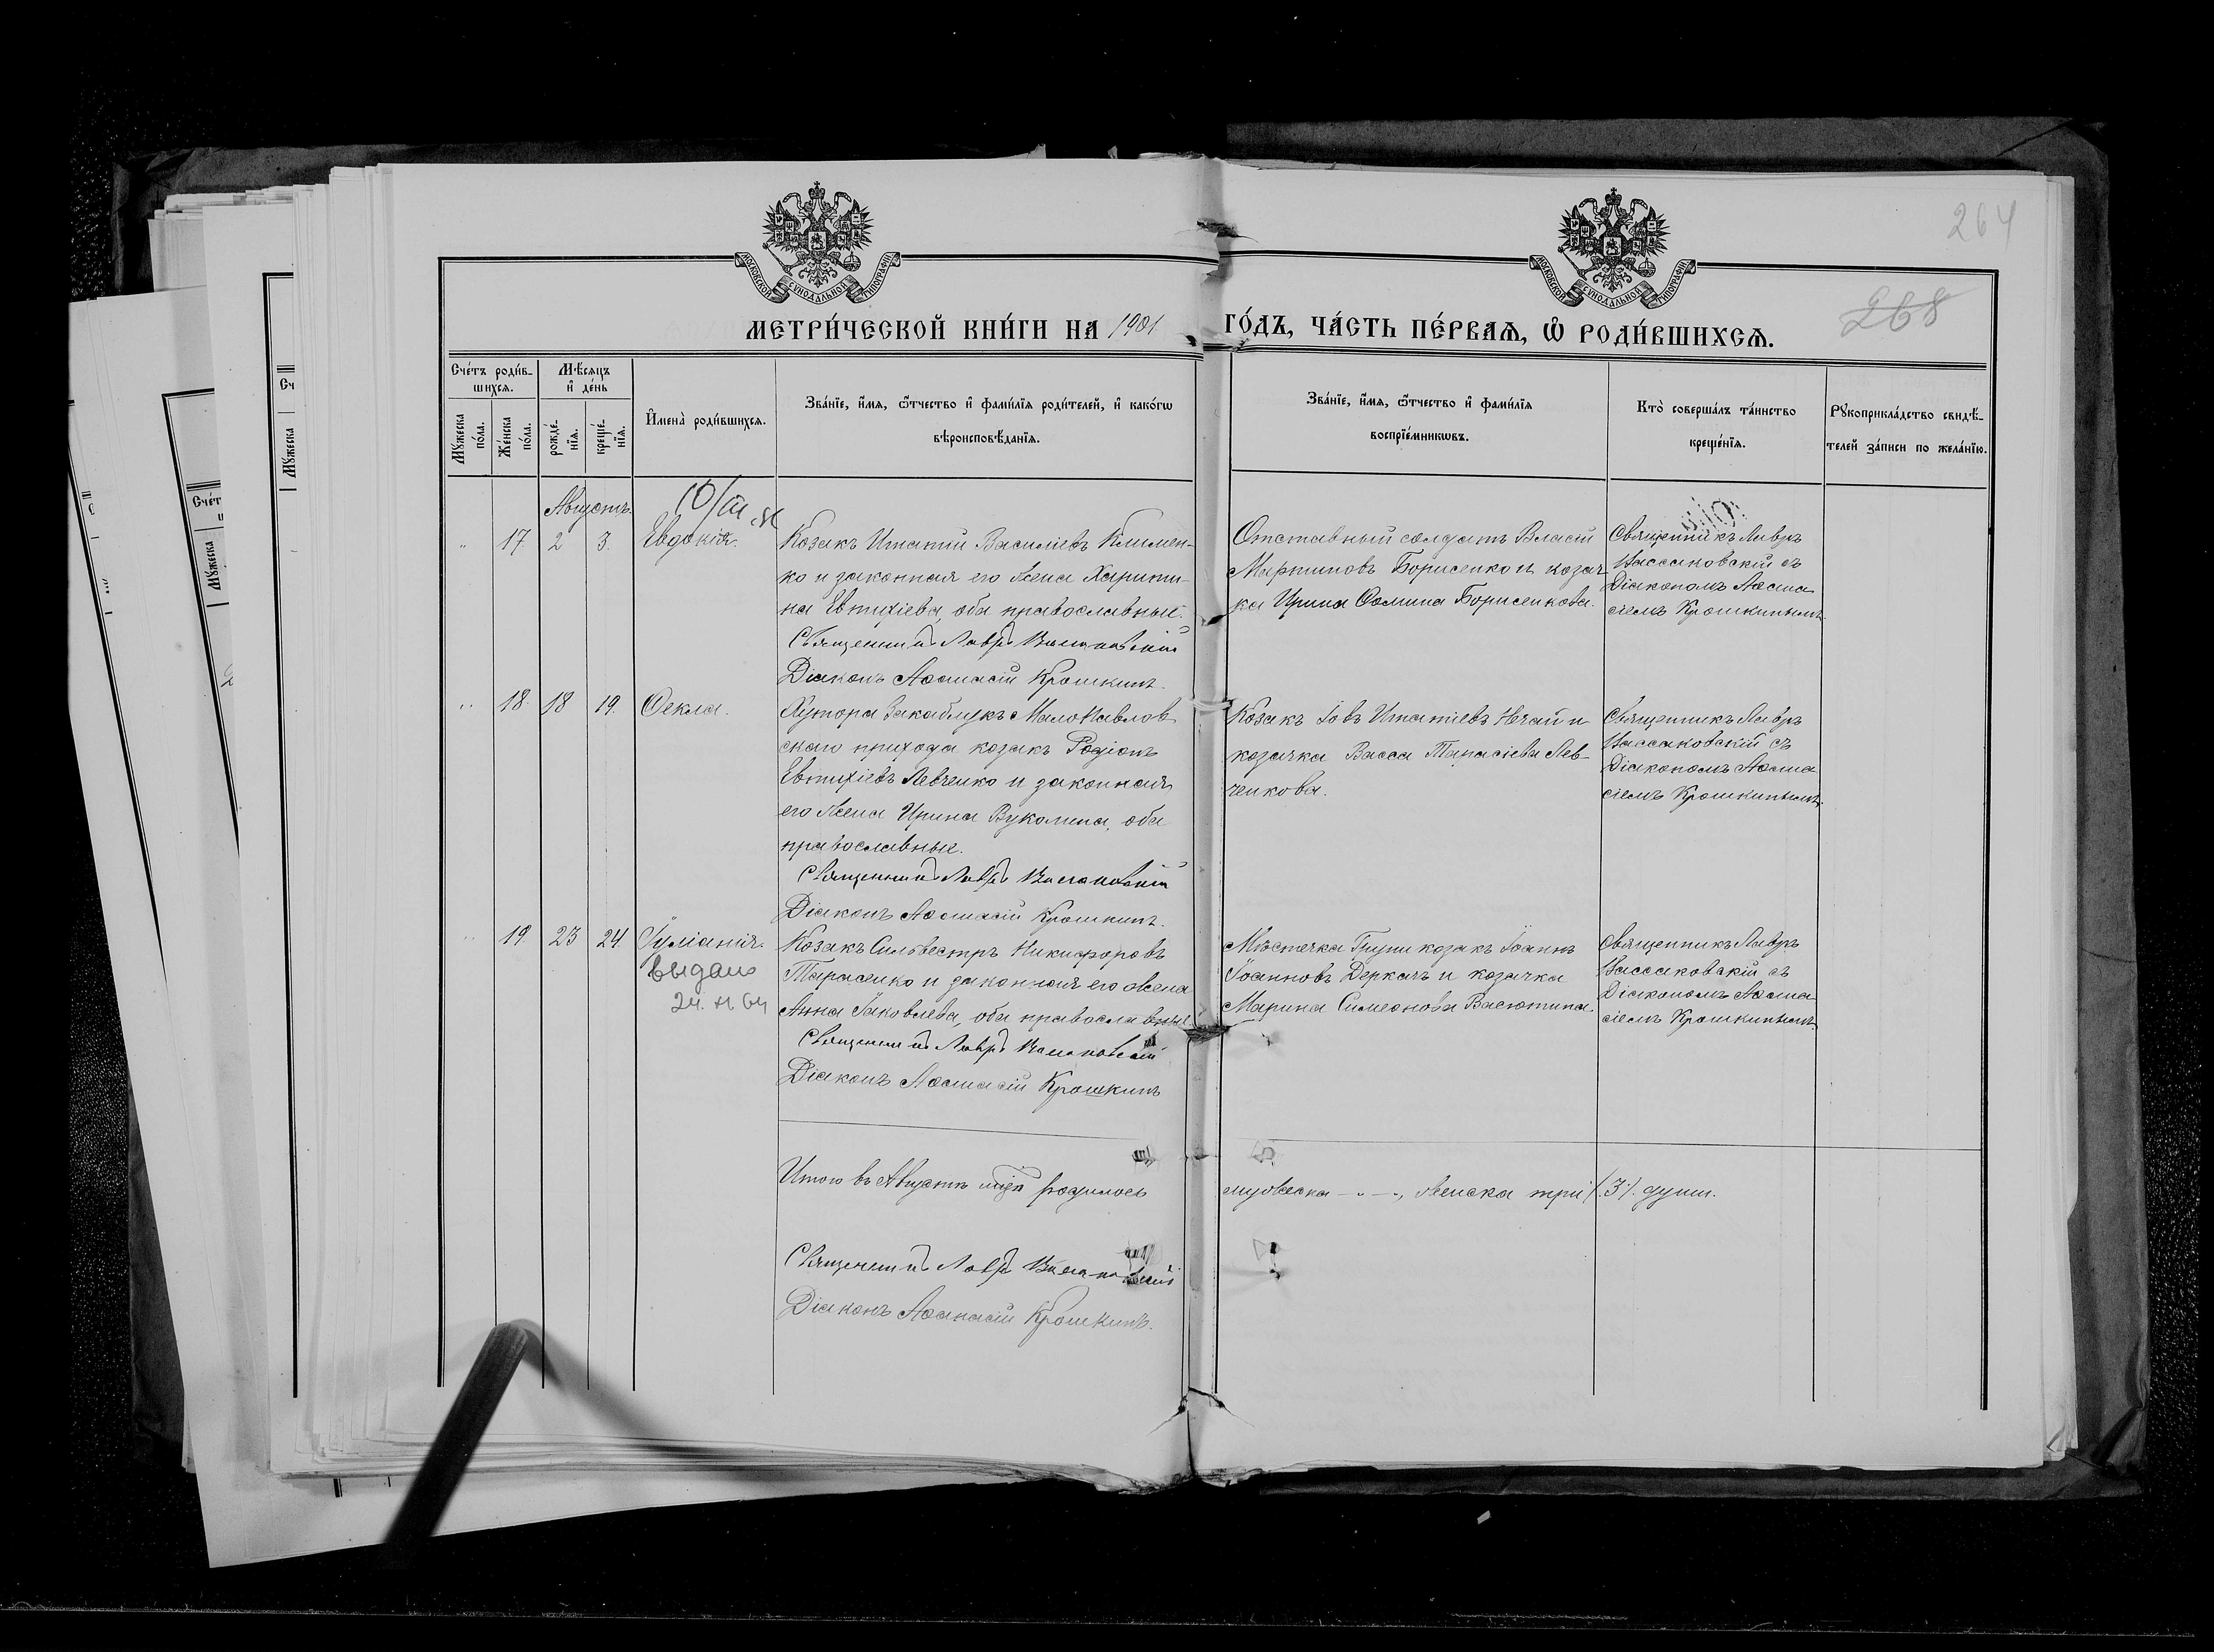 264
268
МОСКОВСКОЙ СѴНОДАЛЬНОЙ ТИПОГРАФІИ
МОСКОВСКОЙ СѴНОДАЛЬНОЙ ТИПОГРАФІИ
МЕТРИ́ЧЕСКОЙ КНИ́ГИ НА 1901 ГО́ДЪ, ЧА́СТЬ ПЕ́РВАѦ, Ѽ РОДИ́ВШИХСѦ.
Сче́тъ роди́в-
шихсѧ.
Мꙋ́жеска
по́ла.
Же́нска
по́ла.
Мѣ́сѧцъ
и҆ де́нь
рожде́-
нїѧ.
креще́-
нїѧ.
И҆мена̀ роди́вшихсѧ.
Зва́нїе, и҆́мѧ, ѻ҆́тчество и҆ фами́лїѧ роди́телей, и҆ како́гѡ
вѣроисповѣ́данїѧ.
Зва́нїе, и҆́мѧ, ѻ҆́тчество и҆ фами́лїѧ
воспрїе́мникѡвъ.
Кто̀ соверша́лъ та́инство
креще́нїѧ.
Рꙋкоприкла́дство свидѣ́-
телей за́писи по жела́нїю.
Августъ.
17. 2 3. Евдокія.
Козакъ Игнатій Василіевъ Климен-
ко и законная его жена Харити-
на Евтихіева, оба православные.
Священникъ Лавръ
Діаконъ Аѳанасій Крошкинъ.
Отставный солдатъ Власій
Мартиновъ Борисенко и козач-
ка Ирина Ѳомина Борисенкова.
Священникъ Лавръ
съ
Діакономъ Аѳана
сіемъ Крошкинымъ.
18. 18 19. Ѳекла.
Хутора Закаблукъ МалоПавлов
скаго прихода козакъ Родіонъ
Евтихіевъ Левченко и законная
его жена Ирина Вуколина, оба
православные.
Священникъ Лавръ
Діаконъ Аѳанасій Крошкинъ.
Козакъ Іовъ Игнатіевъ Нечай и
козачка Васса Тарасіева Лев-
ченкова.
Священникъ Лавръ
съ
Діакономъ Аѳана
сіемъ Крошкинымъ.
19. 23 24. Іуліанія.
выдано
Козакъ Сильвестръ Никифоровъ
Тарасенко и законная его жена
Анна Іаковлева, оба православные
Священникъ Лавръ
Діаконъ Аѳанасій Крошкинъ
Мѣстечка Груни козакъ Іоаннъ
Іоанновъ Деркачъ и козачка
Марина Симеонова Васютина.
Священникъ Лавръ
съ
Діакономъ Аѳана
сіемъ Крошкинымъ
Итого въ Августѣ родилось мужеска - " -, женска три (3) души.
Священникъ Лавръ
Діаконъ Аѳанасій Крошкинъ.